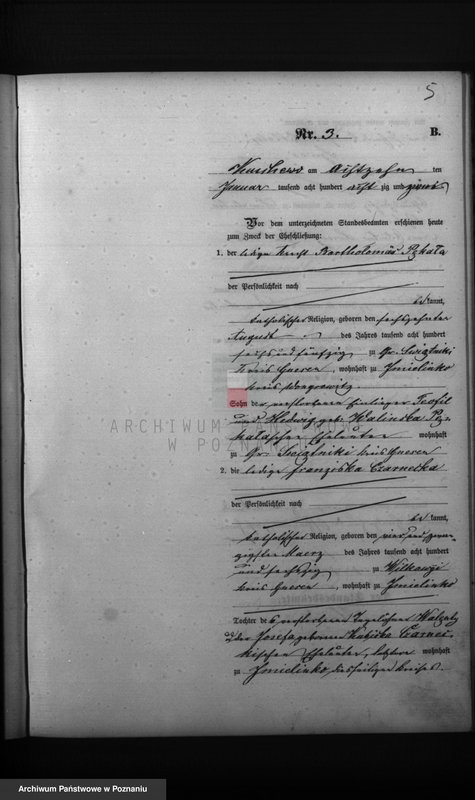 5
Nr. 3. B.
am Achtzehn ten
Januar tausend acht hundert acht zig und zwei
Vor dem unterzeichneten Standesbeamten erschienen heute
zum Zweck der Eheschließung:
1. der ledige Knecht Bartholomäus Pykala
der Persönlichkeit nach
be kannt,
katholischer Religion, geboren den sechszehnten
August des Jahres tausend acht hundert
sechs und fünfzig zu Gr. Swiątniki
Kreis Gnesen, wohnhaft zu Jmielinko
Kreis Wongrowitz
Sohn der verstorbenen Einlieger Teofil
und Hedwig geb. Walinska
Eheleuten wohnhaft
zu Gr. Swiątniki Kreis Gnesen
2. die ledige Franziska Czarnecka
der Persönlichkeit nach
be kannt,
katholischer Religion, geboren den vier und zwan-
zigsten Maerz des Jahres tausend acht hundert
und sechszig zu
Kreis Gnesen, wohnhaft zu Jmielinko
Tochter des verstorbenen Tagelöhner
Josefa geborene Czarnec-
kischen Eheleuten, letztere wohnhaft
zu Jmielinko, diesseitigen Kreises
ARCHIWUM PAŃSTWOWE
W POZNANIU
Archiwum Państwowe w Poznaniu